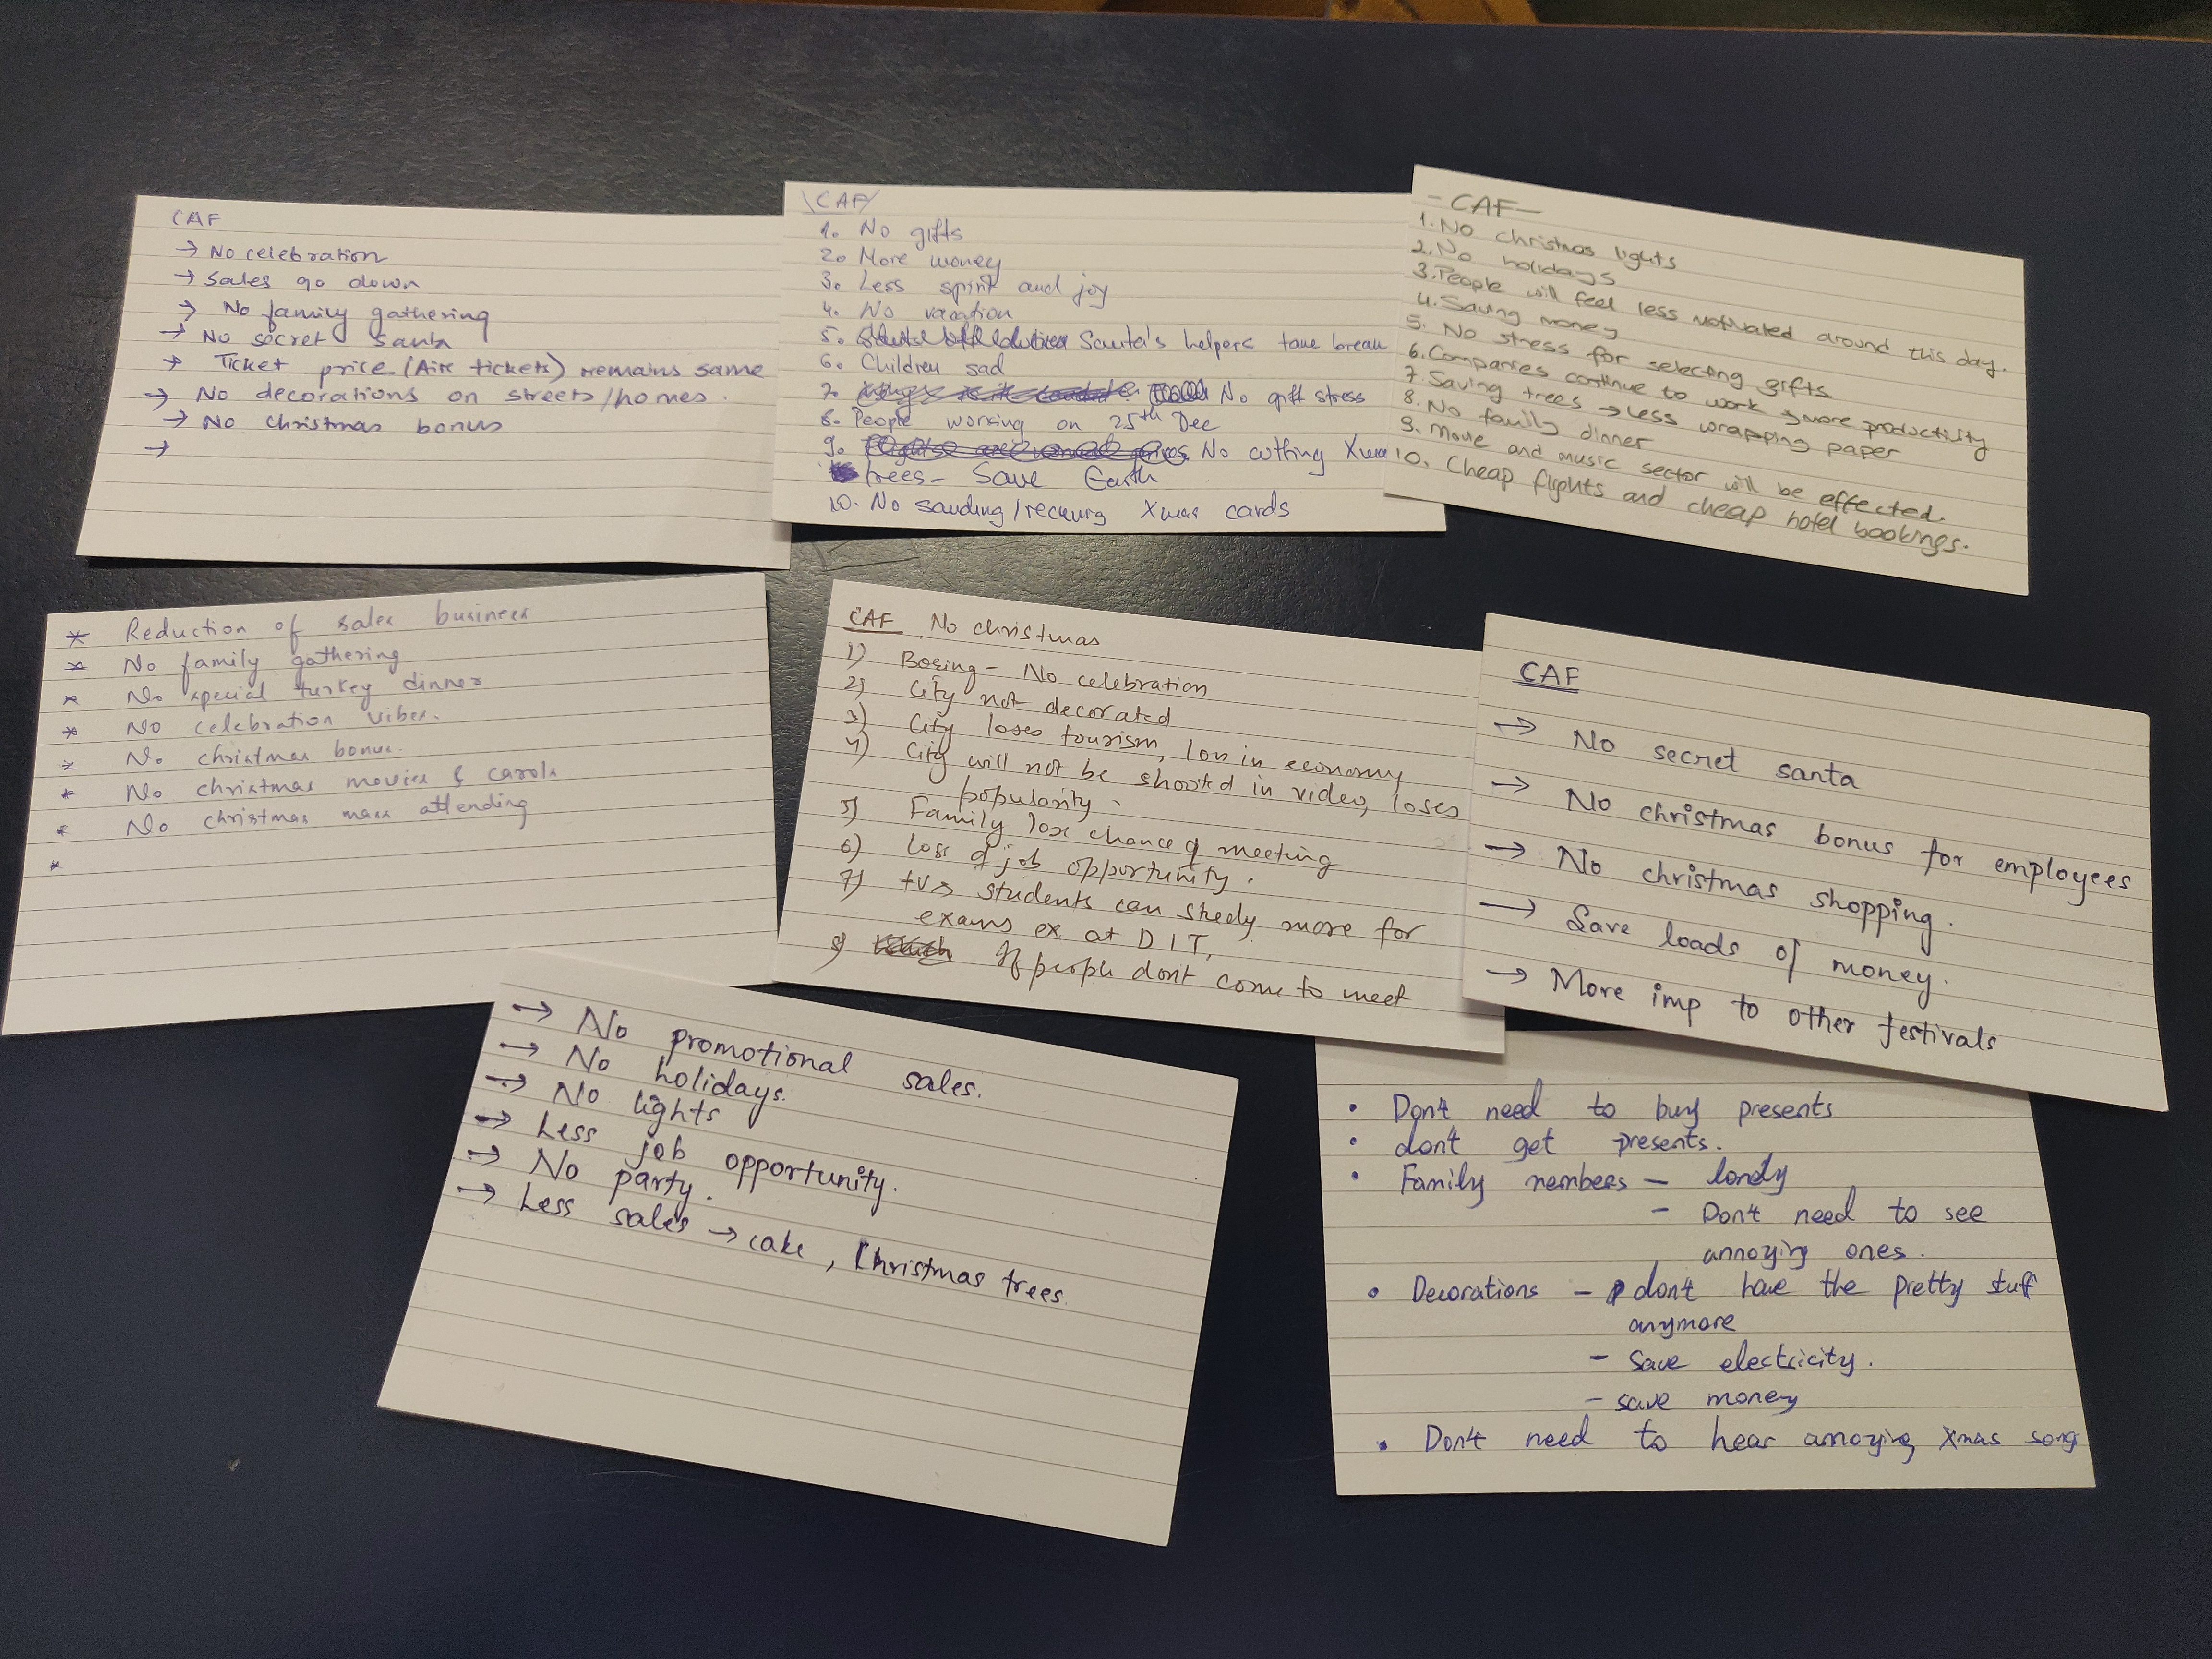 CAF
→ No celebration
→ Sales go down
→ No family gathering
→ No secret santa
→ Ticket price (Air tickets) remains same
→ No decorations on streets/homes.
→ No christmas bonus
→
\CAF/
1. No gifts
2. More money
3. Less spirit and joy
4. No vacation
5. Santa's helpers take break
6. Children sad
7. No gift stress
8. People working on 25th Dec
9. No cutting Xmas
trees - Save Earth
10. No sending/recieving Xmas cards
- CAF -
1. No christmas lights
2. No holidays
3. People will feel less motivated around this day.
4. Saving money
5. No stress for selecting gifts
6. Companies continue to work → more productivity
7. Saving trees → Less wrapping paper
8. No family dinner
9. Movie and music sector will be effected.
10. Cheap flights and cheap hotel bookings.
* Reduction of sales business
* No family gathering
* No special turkey dinner
* No celebration vibes.
* No christmas bonus.
* No christmas movies & carols
* No christmas mass attending
*
CAF No christmas
1) Boring - No celebration
2) City not decorated
3) City loses tourism, loss in economy
4) City will not be shooted in video, loses
popularity.
5) Family lose chance of meeting
6) loss of job opportunity.
7) +ve students can study more for
exams ex at DIT,
8) If people dont come to meet
CAF
→ No secret santa
→ No christmas bonus for employees
→ No christmas shopping.
→ Save loads of money.
→ More imp to other festivals
→ No promotional sales.
→ No holidays.
→ No lights
→ Less job opportunity.
→ No party.
→ Less sales → cake, Christmas trees.
• Don't need to buy presents
• don't get presents.
• Family members - lonely
- Don't need to see
annoying ones.
• Decorations - don't have the pretty stuff
anymore
- Save electricity.
- save money
• Don't need to hear annoying Xmas song